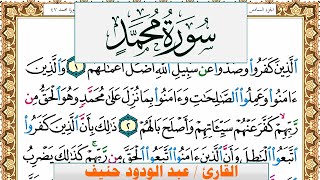 الجزء السادس
سورة محمد ٤٧
سُورَةُ مُحَمَّدٍ
ٱلَّذِينَ كَفَرُوا۟ وَصَدُّوا۟ عَن سَبِيلِ ٱللَّهِ أَضَلَّ أَعْمَٰلَهُمْ ١ وَٱلَّذِينَ
ءَامَنُوا۟ وَعَمِلُوا۟ ٱلصَّٰلِحَٰتِ وَءَامَنُوا۟ بِمَا نُزِّلَ عَلَىٰ مُحَمَّدٍ وَهُوَ ٱلْحَقُّ مِن
رَّبِّهِمْ كَفَّرَ عَنْهُمْ سَيِّـَٔاتِهِمْ وَأَصْلَحَ بَالَهُمْ ٢ ذَٰلِكَ بِأَنَّ ٱلَّذِينَ كَفَرُوا۟
ٱتَّبَعُوا۟ ٱلْبَٰطِلَ وَأَنَّ ٱلَّذِينَ ءَامَنُوا۟ ٱتَّبَعُوا۟ ٱلْحَقَّ مِن رَّبِّهِمْ كَذَٰلِكَ يَضْرِبُ
القارئ / عبد الودود حنيف